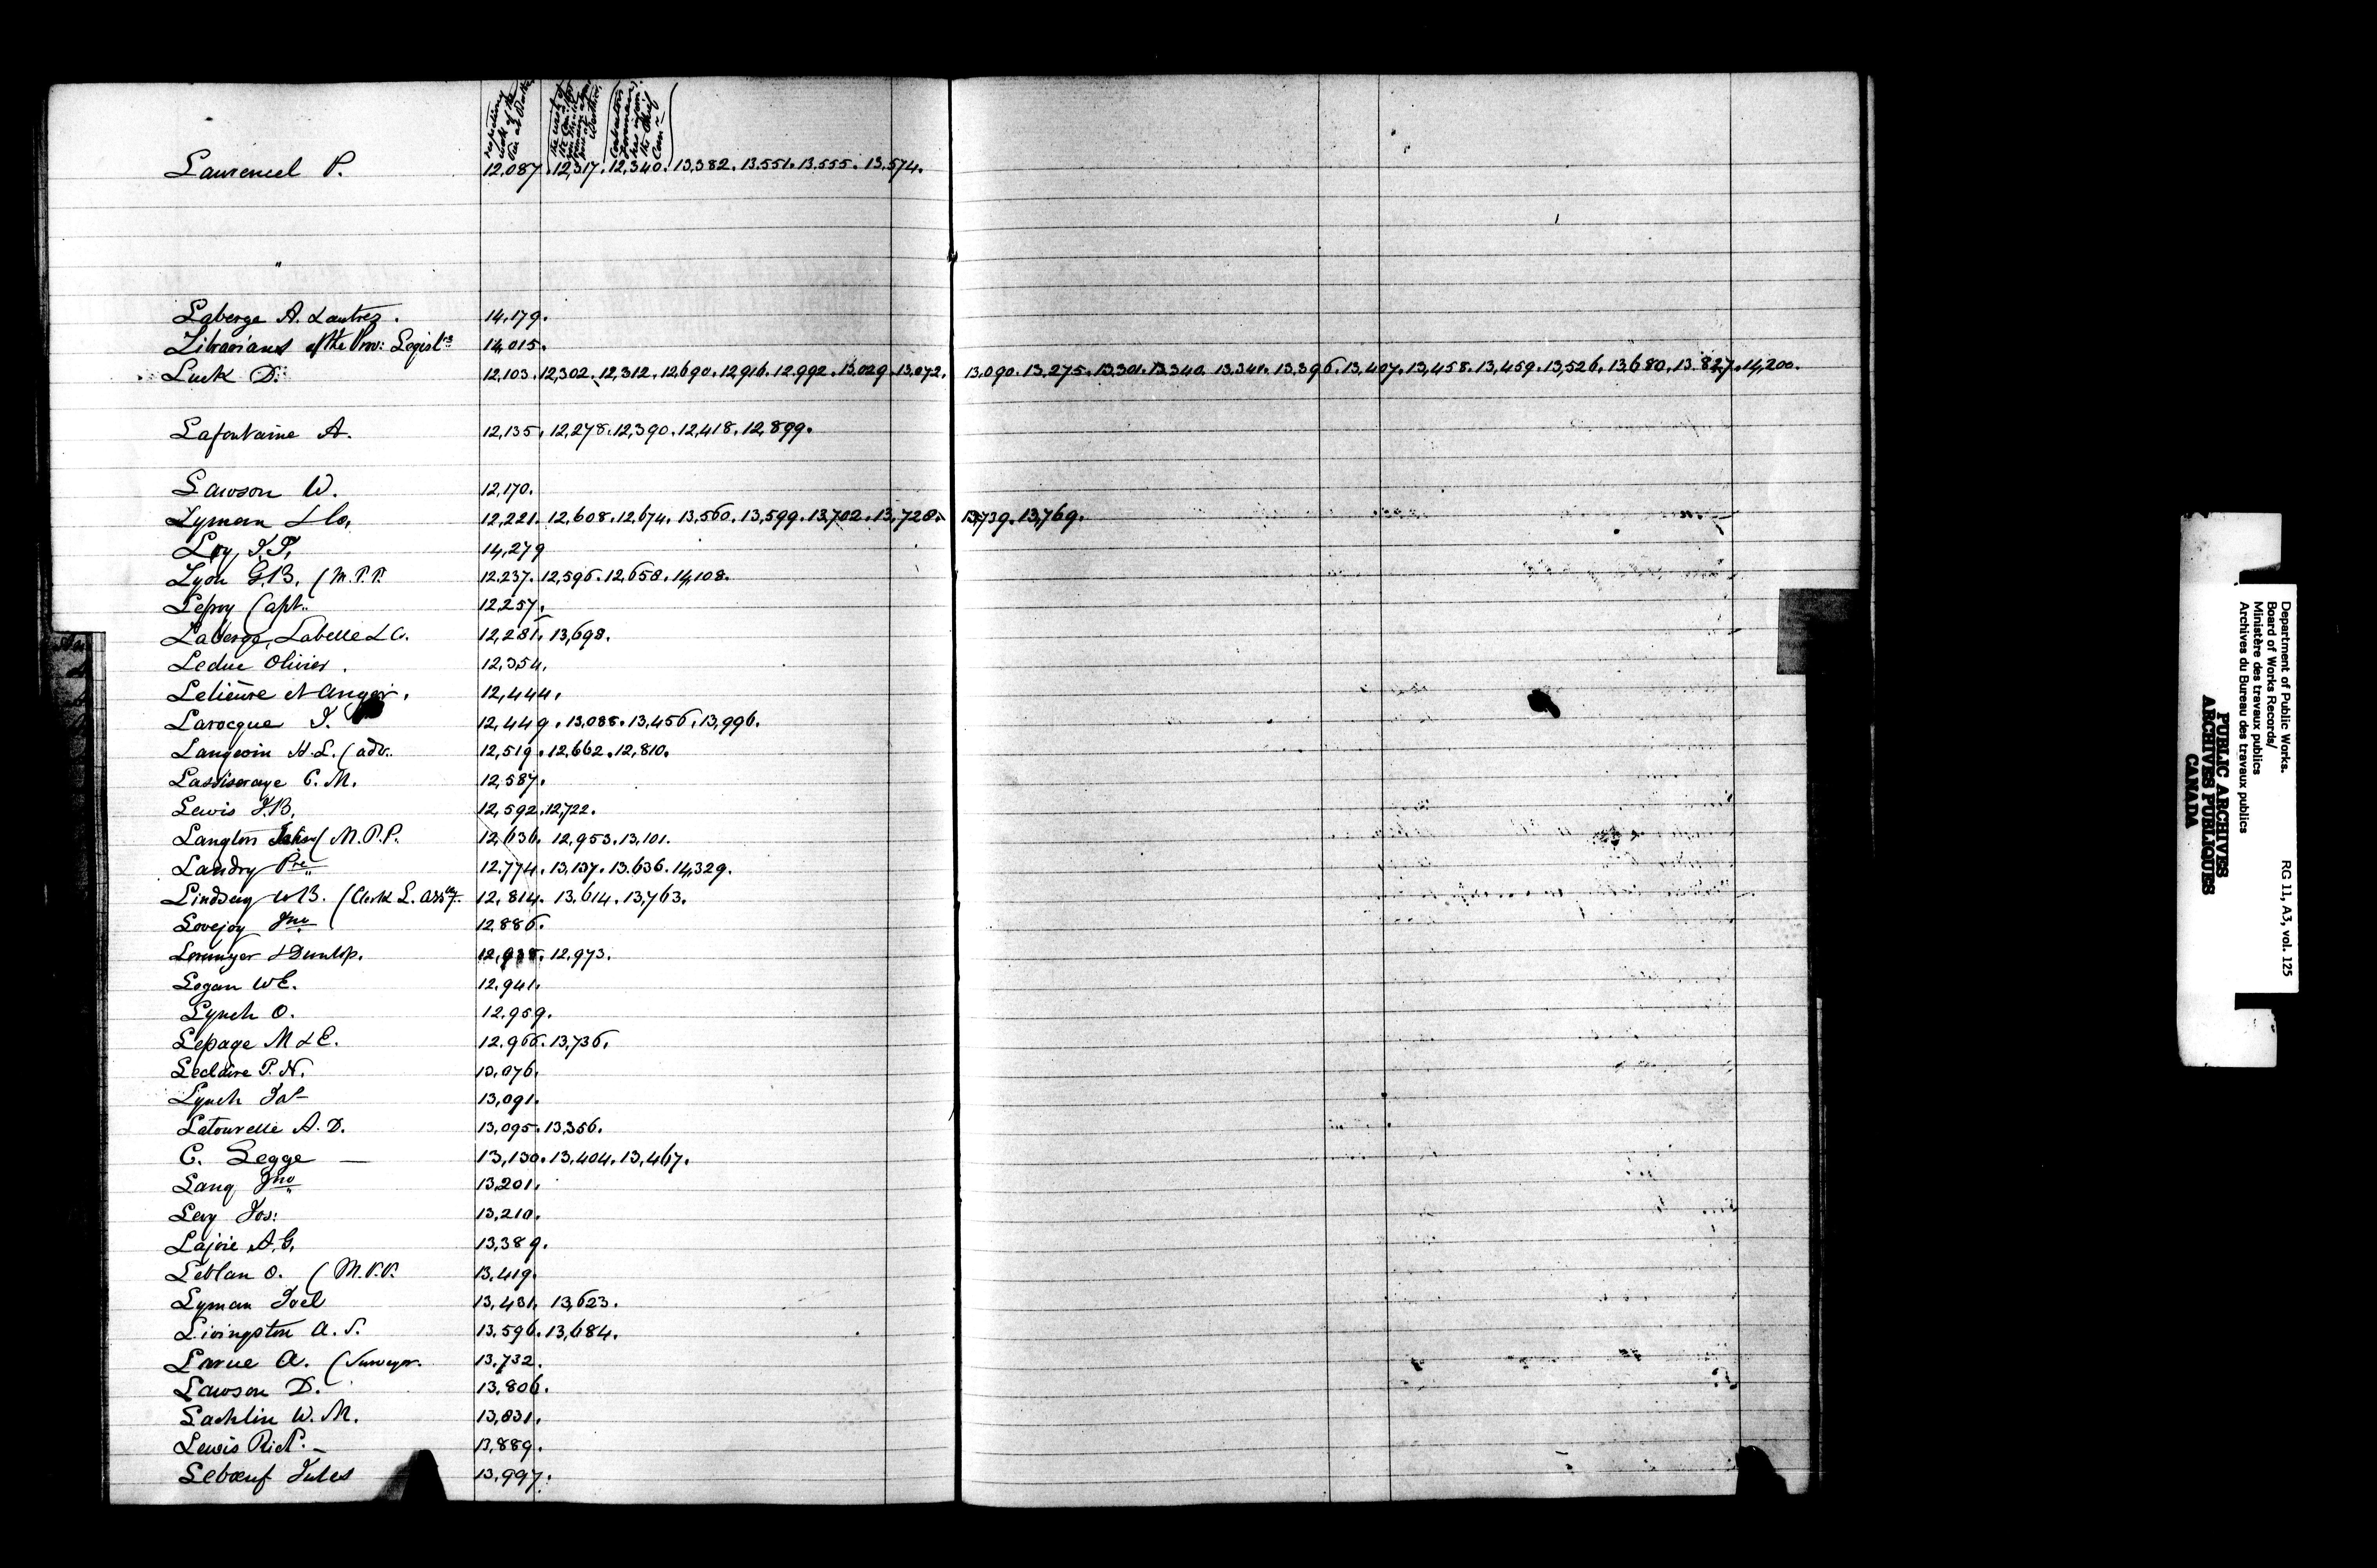 Laurencel P. 12,087. 12,317. 12,340. 13,382. 13,551. 13,555. 13,574.
Laberge A. 14,179.
Librarians of the Prov: Legisl 14,015.
Luck D. 12,103. 12,302. 12,312. 12,690. 12,916. 12,992. 13,029. 13,072. 13,090. 13,275. 13,301. 13,340. 13,341. 13,396. 13,407. 13,458. 13,459. 13,526. 13,680. 13,827. 14,200.
Lafontaine A. 12,135. 12,278. 12,390. 12,418. 12,899.
Lawson W. 12,170.
Lyman & Co. 12,221. 12,608. 12,674. 13,560. 13,599. 13,702. 13,728. 13,739. 13,769.
14,279
Lyon G.B. (M.P.P. 12,237. 12,596. 12,658. 14,108.
Lefroy Capt. 12,257.
Laberge, Labelle & Co. 12,281. 13,698.
Leduc Olivier. 12,354.
Lelièvre et Anger. 12,444.
Larocque J. 12,449. 13,088. 13,456. 13,996.
Langevin H.L. (adv. 12,519. 12,662. 12,810.
C.M. 12,587.
Lewis J.B. 12,592. 12,722.
Langton John (M.P.P. 12,636. 12,953. 13,101.
Landry Pre 12,774. 13,137. 13,636. 14,329.
Lindsay W.B. (Clerk L. Assy. 12,814. 13,614. 13,763.
Lovejoy Jno 12,886.
Loranger & Dunlop. 12,973.
Logan W.E. 12,941.
Lynch O. 12,959.
Lepage M & E. 12,966. 13,736.
Leclaire P.N. 13,076.
Lynch Jas 13,091.
Latourelle A.D. 13,095. 13,356.
C. Legge — 13,130. 13,404. 13,467.
Lang Jno 13,201.
Levy Jos: 13,210.
Lajoie A.G. 13,389.
Leblan O. (M.P.P. 13,419.
Lyman Joel 13,431. 13,623.
Livingston A.S. 13,596. 13,684.
Larue A. (Surveyor. 13,732.
Lawson D. 13,806.
Lachlin W.M. 13,831.
Lewis Richd. — 13,889.
Leboeuf Jules 13,997.
Department of Public Works.
Board of Works Records/
Ministère des travaux publics
Archives du Bureau des travaux publics
RG 11, A3, vol. 125
PUBLIC ARCHIVES
ARCHIVES PUBLIQUES
CANADA